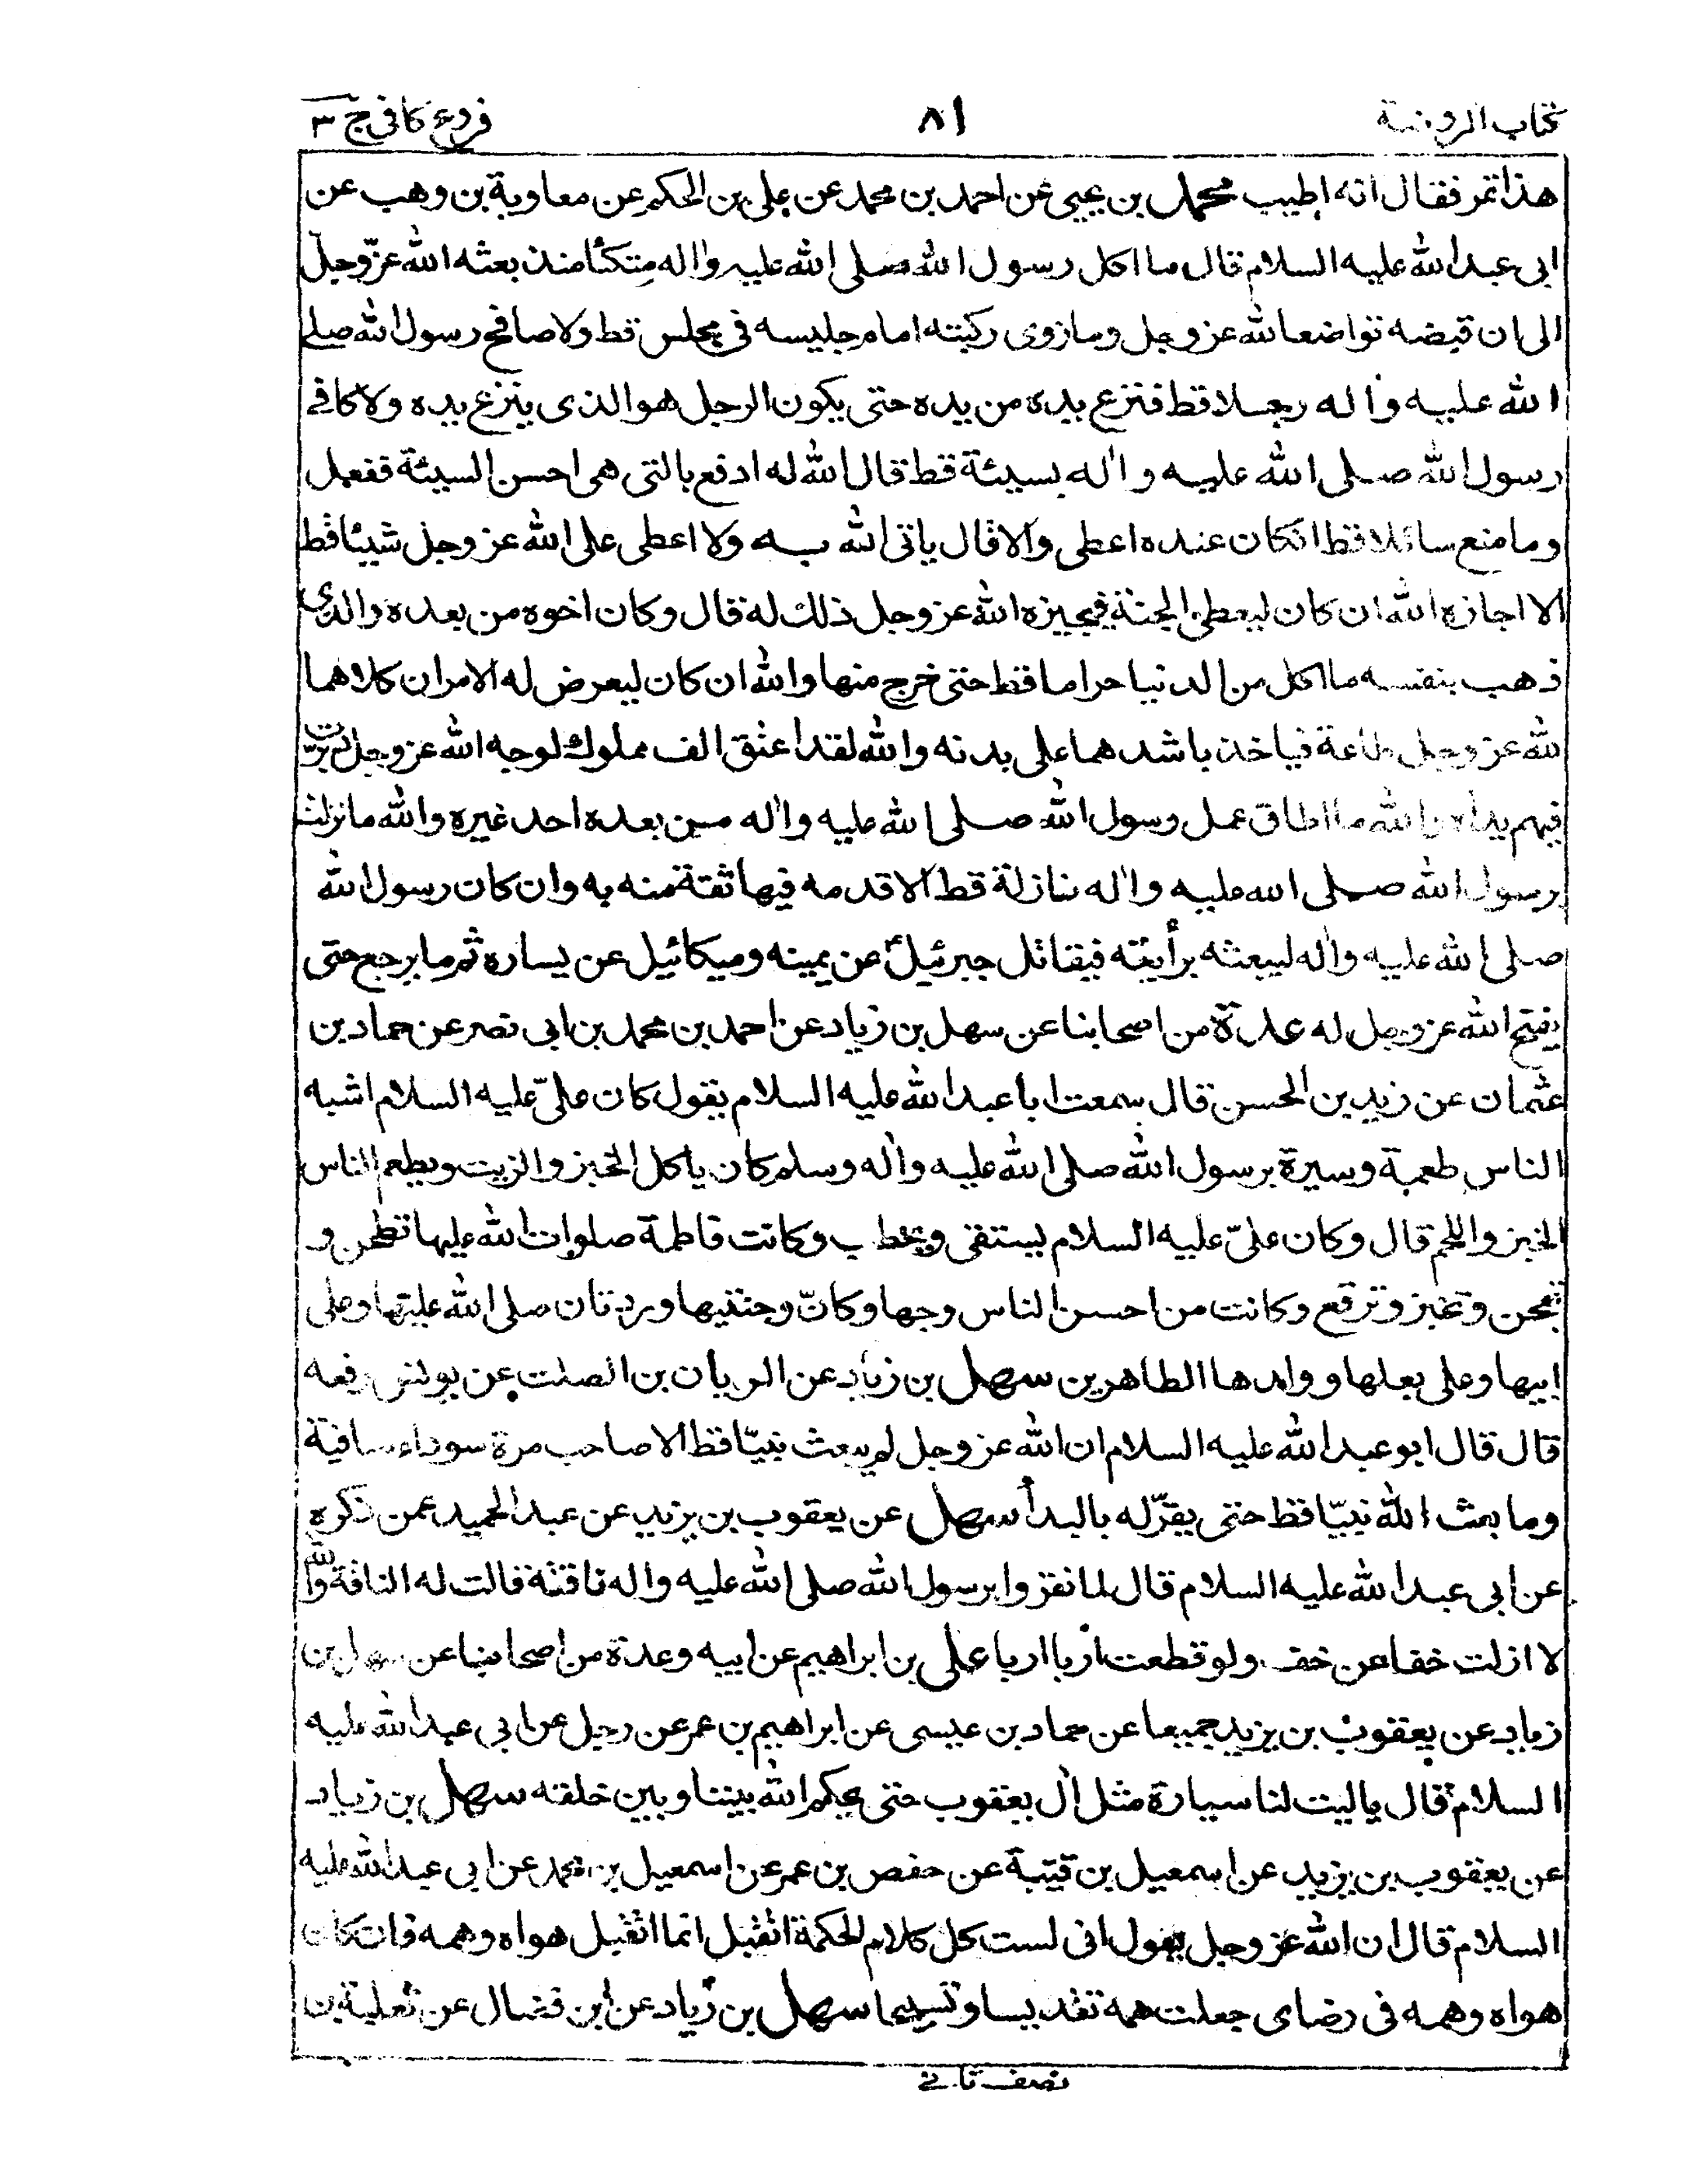 كتاب الروضة ٨١ فروع كافى ج ٣
هذا تمر فقال انه اطيب محمد بن يحيى عن احمد بن محمد عن على بن الحكم عن معاوية بن وهب عن
ابى عبد الله عليه السلام قال ما اكل رسول الله صلى الله عليه واله متكئا منذ بعثه الله عزّ وجلّ
الى ان قبضه تواضعا لله عز وجل وما زوى ركبته امام جليسه فى مجلس قط ولا صافح رسول الله صلى
الله عليه واله رجلا قط فنزع يده من يده حتى يكون الرجل هو الذى ينزع يده ولا كافى
رسول الله صلى الله عليه واله بسيئة قط قال الله له ادفع بالتى هى احسن السيئة ففعل
وما منع سائلا قط انكان عنده اعطى والا قال ياتى الله به ولا اعطى على الله عز وجل شيئا قط
الا اجازه الله ان كان ليعطى الجنة فيجيزه الله عز وجل ذلك له قال وكان اخوه من بعده والذى
ذهب بنفسه ما اكل من الدنيا حراما قط حتى خرج منها والله ان كان ليعرض له الامران كلاهما
لله عز وجل طاعة فياخذ باشدهما على بدنه والله لقد اعتق الف مملوك لوجه الله عز وجل دبرت
فيهم يداه والله ما اطاق عمل رسول الله صلى الله عليه واله من بعده احد غيره والله ما نزلت
برسول الله صلى الله عليه واله نازلة قط الا قدمه فيها ثقة منه به وان كان رسول الله
صلى الله عليه واله ليبعثه برأيته فيقاتل جبرئيل عن يمينه وميكائيل عن يساره ثم ما يرجع حتى
يفتح الله عز وجل له عدة من اصحابنا عن سهل بن زياد عن احمد بن محمد بن ابى نصر عن حماد بن
عثمان عن زيد بن الحسن قال سمعت ابا عبد الله عليه السلام يقول كان علىّ عليه السلام اشبه
الناس طعمة وسيرة برسول الله صلى الله عليه واله وسلم كان ياكل الخبز والزيت ويطعم الناس
الخبز واللحم قال وكان علىّ عليه السلام يستقى ويحطب وكانت فاطمة صلوات الله عليها تطحن و
تعجن وتخبز وترقع وكانت من احسن الناس وجها وكانّ وجنتيها وردتان صلى الله عليها وعلى
ابيها وعلى بعلها وولدها الطاهرين سهل بن زياد عن الريان بن الصلت عن يونس رفعه
قال قال ابو عبد الله عليه السلام ان الله عز وجل لم يبعث نبيّا قط الا صاحب مرة سوداء صافية
وما بعث الله نبيّا قط حتى يقرّ له بالبدأ سهل عن يعقوب بن يزيد عن عبد الحميد عمن ذكره
عن ابى عبد الله عليه السلام قال لما نفروا برسول الله صلى الله عليه واله ناقته قالت له الناقة والله
لا ازلت خفا عن خف ولو قطعت اربا اربا على بن ابراهيم عن ابيه وعدة من اصحابنا عن سهل بن
زياد عن يعقوب بن يزيد جميعا عن حماد بن عيسى عن ابراهيم بن عمر عن رجل عن ابى عبد الله عليه
السلام قال يا ليت لنا سيارة مثل ال يعقوب حتى يحكم الله بيننا وبين خلقه سهل بن زياد
عن يعقوب بن يزيد عن اسمعيل بن قتيبة عن حفص بن عمر عن اسمعيل بن محمد عن ابى عبد الله عليه
السلام قال ان الله عز وجل يقول انى لست كل كلام الحكمة اتقبل انما اتقبل هواه وهمه فان كان
هواه وهمه فى رضاى جعلت همه تقديسا وتسبيحا سهل بن زياد عن ابن فضال عن ثعلبة بن
نصف ثانى